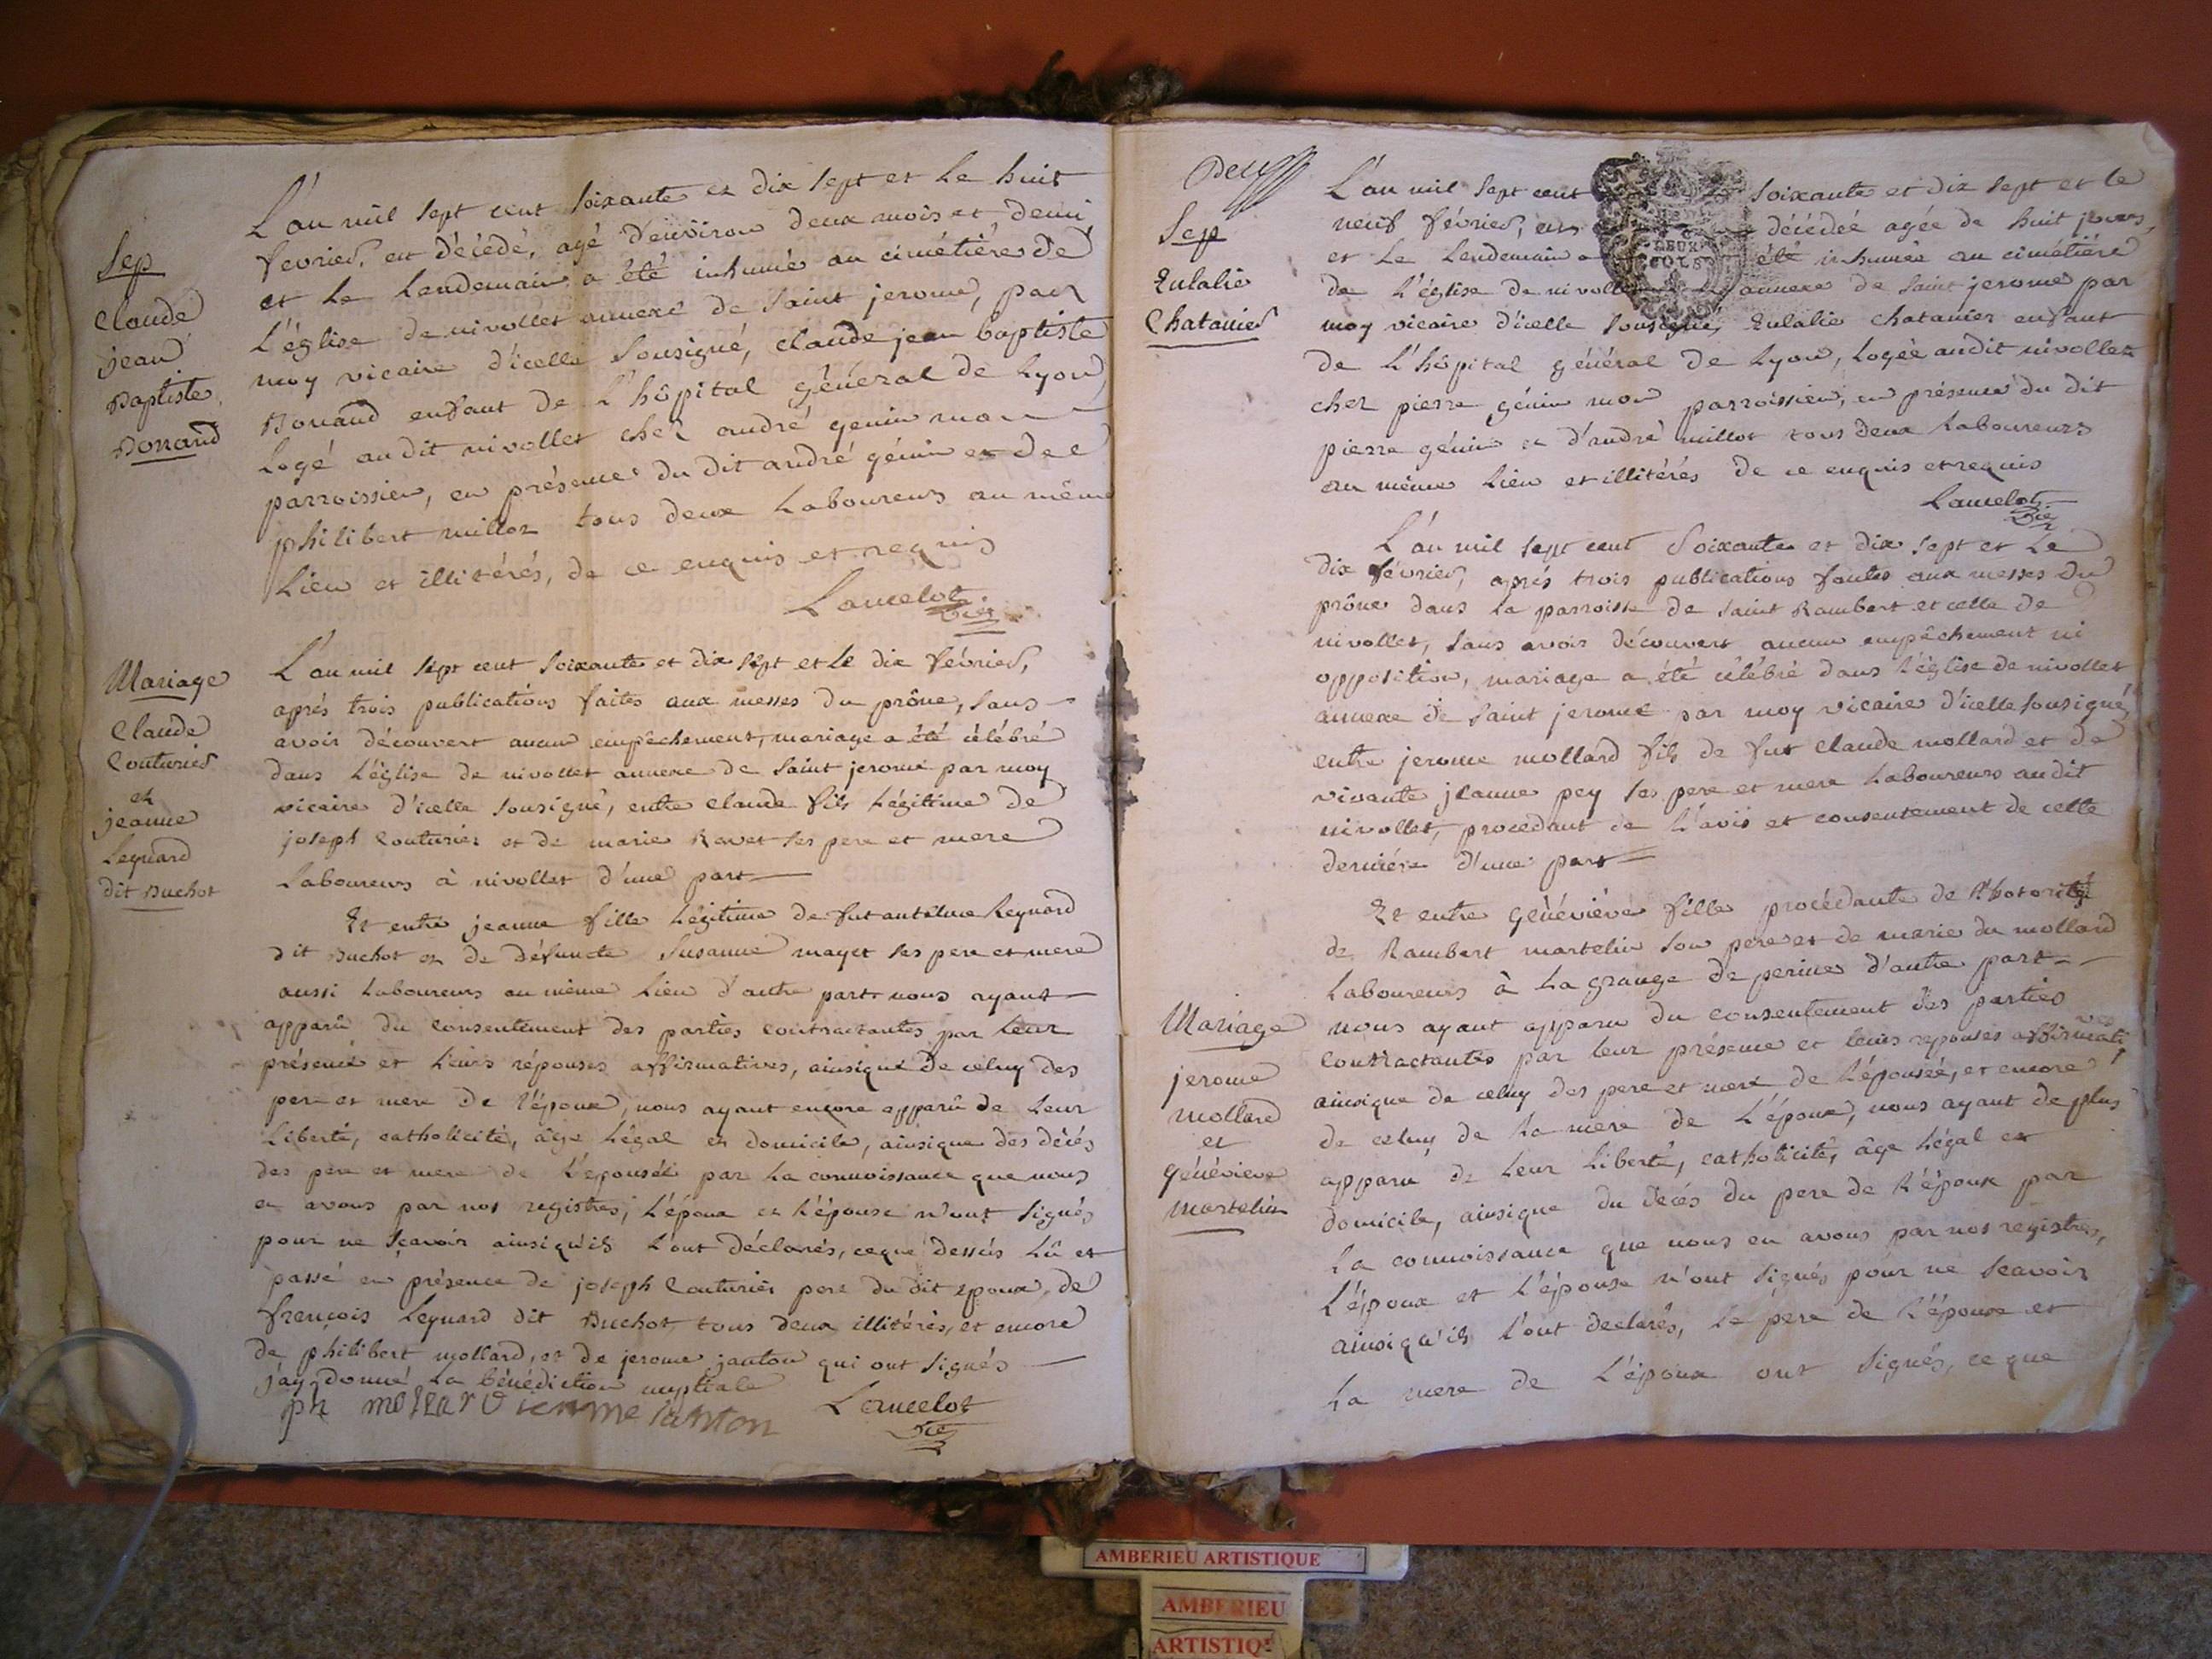 Sep
Claude
jean
Baptiste
Bonand
L'an mil sept cent soixante et dix sept et le huit
fevrier, est décédé, agé d'environ deux mois et demi
et le lendemain a été inhumé au cimétière de
l'église de nivollet annexe de saint jerome, par
moy vicaire d'icelle sousigné, claude jean baptiste
Bonand enfant de l'hôpital général de Lyon,
logé au dit nivollet chez andré genin mon
parroissien, en présence du dit andré génin et de
philibert millot tous deux laboureurs au même
lieu et illitérés, de ce enquis et requis
Lancelot
vic
Mariage
Claude
Couturier
et
jeanne
Leynard
dit Buchot
L'an mil sept cent soixante et dix sept et le dix février,
aprés trois publications faites aux messes du prône, sans
avoir découvert aucun empêchement, mariage a été célébré
dans l'église de nivollet annexe de saint jerome par moy
vicaire d'icelle sousigné, entre claude fils légitime de
joseph Couturier et de marie Ravet ses pere et mere
laboureurs à nivollet d'une part
Et entre jeanne fille légitime de fut antelme Leynard
dit Buchot et de défuncte Susanne mayet ses pere et mere
aussi laboureurs au même lieu d'autre part nous ayant
apparû du consentement des parties contractantes par leur
présence et leurs réponses affirmatives, ainsique de celuy des
pere et mere de l'époux, nous ayant encore apparû de leur
liberté, catholicité, âge légal et domicile, ainsique des décés
des pere et mere de l'epousée par la connoissance que nous
en avons par nos registres, l'époux et l'épouse n'ont signés
pour ne sçavoir ainsiqu'ils l'ont déclarés, ceque dessus lû et
passé en présence de joseph Couturier pere du dit epoux, de
françois Leynard dit Buchot, tous deux illitérés, et encore
de philibert mollard, et de jerome janton qui ont signés
j'ay donné la bénédiction nuptiale
ph mollard jerome janton Lancelot
vic
Deux
Sep
Eulalie
Chatanier
L'an mil sept cent soixante et dix sept et le
neuf février, est décédée agée de huit jours,
et le lendemain a été inhumée au cimétière
DEUX
SOLS
de l'église de nivollet annexe de saint jerome par
moy vicaire d'icelle sousigné, Eulalie chatanier enfant
de l'hôpital général de Lyon, logée audit nivollet
chez pierre génin mon parroissien, en présence du dit
pierre génin et d'andré millot tous deux laboureurs
au même lieu et illitérés de ce enquis et requis
Lancelot
vic
L'an mil sept cent soixante et dix sept et le
dix février, aprés trois publications faites aux messes du
prône dans la parroisse de saint Rambert et celle de
nivollet, sans avoir découvert aucun empêchement ni
opposition, mariage a été célébré dans l'église de nivollet
annexe de saint jerome par moy vicaire d'icelle sousigné,
entre jerome mollard fils de fut claude mollard et de
vivante jeanne pey ses pere et mere laboureurs audit
nivollet, procedant de l'avis et consentement de cette
derniére d'une part
Et entre généviéve fille procédante de l'hotorité
de Rambert martelin son pere et de marie du mollard
laboureurs à la grange de perine d'autre part
Mariage
jerome
mollard
et
généviéve
martelin
nous ayant apparu du consentement des parties
contractantes par leur présence et leurs réponses affirmatives
ainsique de celuy des pere et mere de l'épousée, et encore
de celuy de la mere de l'époux, nous ayant de plus
apparu de leur liberté, catholicité, âge légal et
domicile, ainsique du décés du pere de l'époux par
la connoissance que nous en avons par nos registres,
l'époux et l'épouse n'ont signés pour ne scavoir
ainsiqu'ils l'ont declarés, le pere de l'épouse et
la mere de l'époux ont signés, ce que
AMBERIEU ARTISTIQUE
AMBERIEU
ARTISTIQ